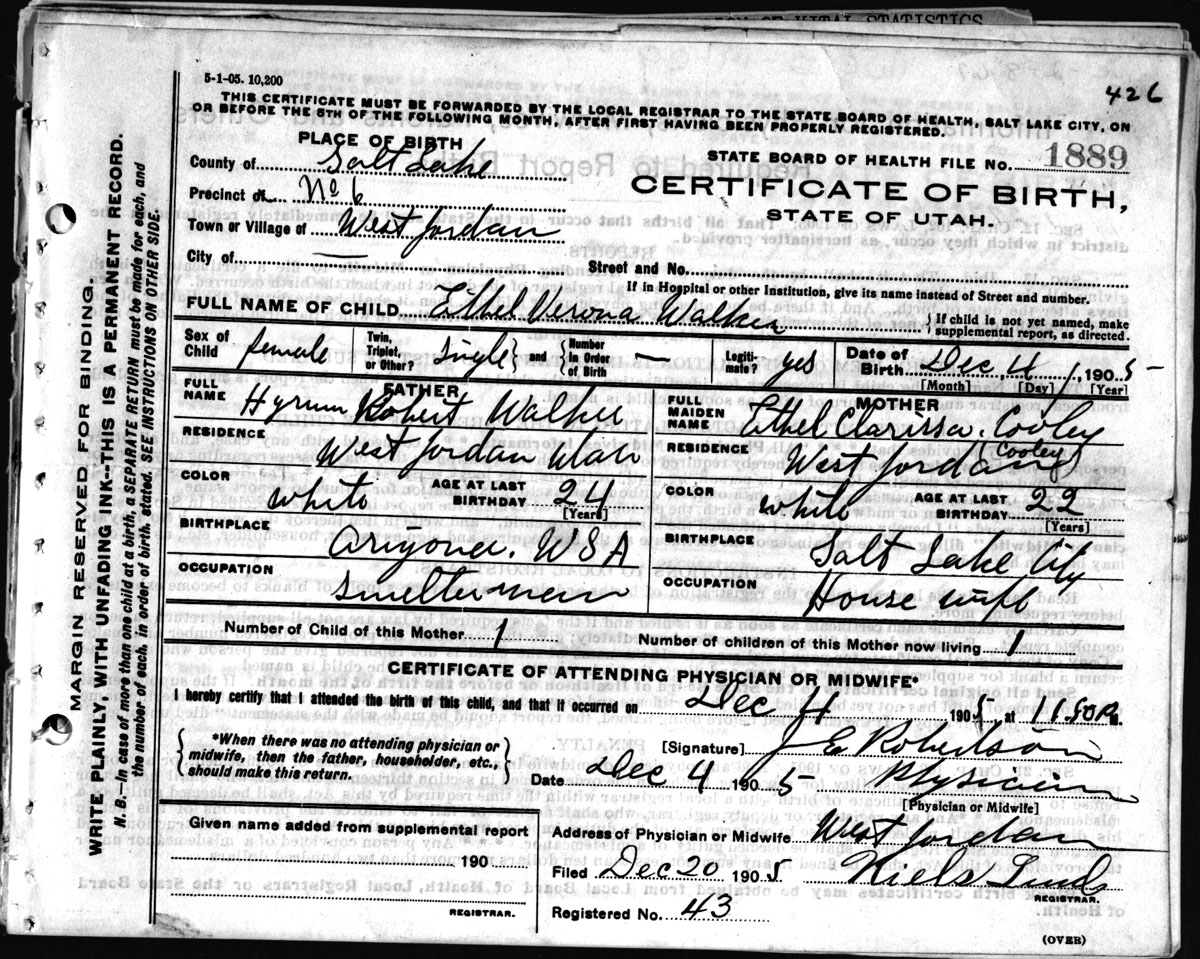 OF VITAL STATISTICS
5-1-05. 10,200
426
THIS CERTIFICATE MUST BE FORWARDED BY THE LOCAL REGISTRAR TO THE STATE BOARD OF HEALTH, SALT LAKE CITY, ON
OR BEFORE THE 5TH OF THE FOLLOWING MONTH, AFTER FIRST HAVING BEEN PROPERLY REGISTERED.
PLACE OF BIRTH
STATE BOARD OF HEALTH FILE No. 1889
County of Salt Lake
CERTIFICATE OF BIRTH,
Precinct of No 6
STATE OF UTAH.
Town or Village of West Jordan
City of —
Street and No.
If in Hospital or other Institution, give its name instead of Street and number.
FULL NAME OF CHILD Ethel Verona Walker
{If child is not yet named, make supplemental report, as directed.
Sex of Child female
Twin, Triplet, or Other? Single } and { Number in Order of Birth —
Legitimate? yes
Date of Birth Dec 4, 1905
[Month] [Day] [Year]
FATHER
FULL NAME Hyrum Robert Walker
RESIDENCE West Jordan Utah
COLOR white
AGE AT LAST BIRTHDAY 24
[Years]
BIRTHPLACE Arizona. USA
OCCUPATION Smelterman
MOTHER
FULL MAIDEN NAME Ethel Clarissa. Cooley
(Cooley)
RESIDENCE West Jordan
COLOR white
AGE AT LAST BIRTHDAY 22
[Years]
BIRTHPLACE Salt Lake City
OCCUPATION House wife
Number of Child of this Mother 1
Number of children of this Mother now living 1
CERTIFICATE OF ATTENDING PHYSICIAN OR MIDWIFE*
I hereby certify that I attended the birth of this child, and that it occurred on Dec 4 1905, at 11.50 P M.
{*When there was no attending physician or midwife, then the father, householder, etc., should make this return.}
[Signature] J E Robertson
Date Dec 4 1905
Physician
[Physician or Midwife]
Given name added from supplemental report
190
REGISTRAR.
Address of Physician or Midwife West Jordan
Filed Dec 20 1905
Niels Lind
REGISTRAR.
Registered No. 43
(OVER)
MARGIN RESERVED FOR BINDING.
WRITE PLAINLY, WITH UNFADING INK--THIS IS A PERMANENT RECORD.
N. B.—In case of more than one child at a birth, a SEPARATE RETURN must be made for each, and
the number of each, in order of birth, stated. SEE INSTRUCTIONS ON OTHER SIDE.